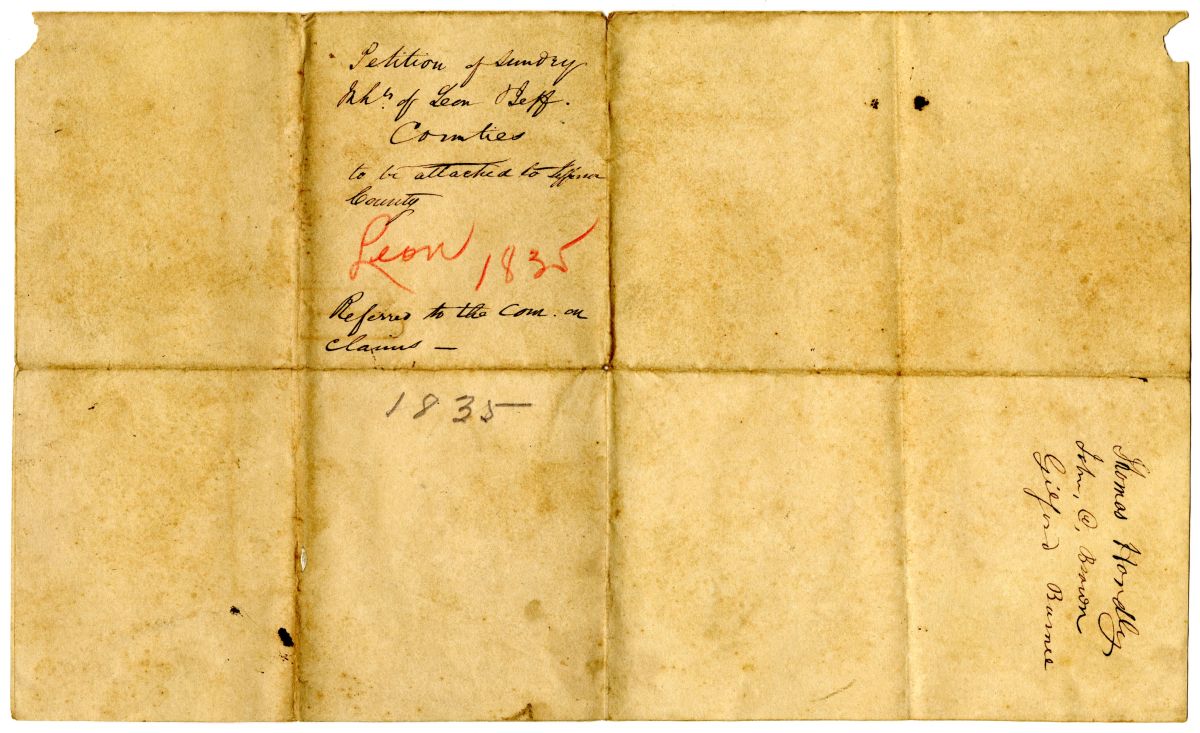 Petition of Sundry
Inhts of Leon & Jeff.
Counties
to be attached to Jefferson
County
Leon 1835
Referred to the Com. on
claims —
1835
Thomas Hondly
John, C, Brown
Gilford Barnee